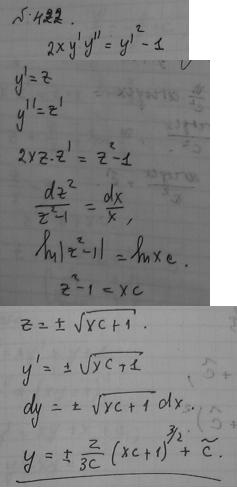 № 422.
2xy'y'' = y'² - 1
y' = z
y'' = z'
2xz·z' = z² - 1
dz²/(z² - 1) = dx/x,
ln|z² - 1| = ln xc.
z² - 1 = xc
z = ± √(xc + 1).
y' = ± √(xc + 1)
dy = ± √(xc + 1) dx.
y = ± 2/(3c) (xc + 1)^(3/2) + c̃.